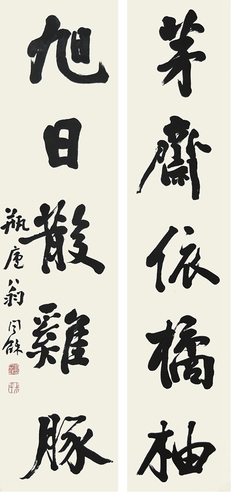 茅齋依橘柚
旭日散雞豚
瓶廬翁同龢